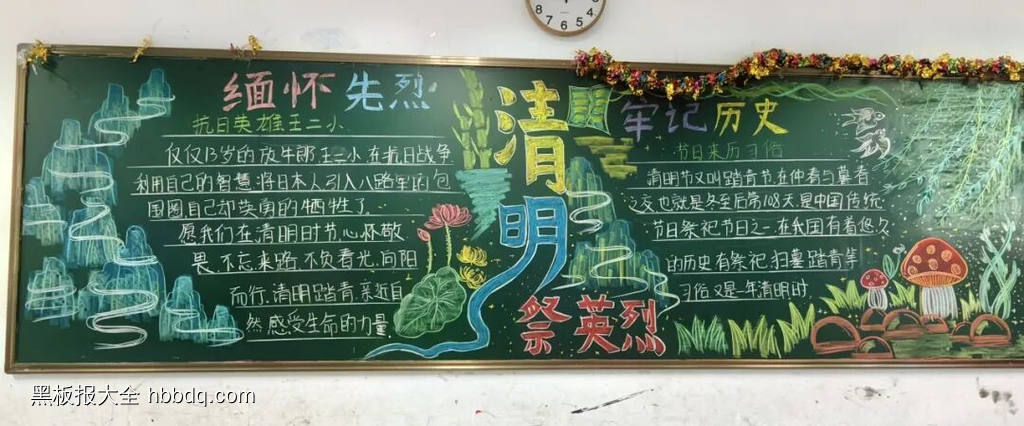 缅怀先烈
抗日英雄王二小
仅仅13岁的放牛郎王二小在抗日战争
利用自己的智慧将日本人引入八路军的包
围圈自己却英勇的牺牲了
愿我们在清明时节心怀敬
畏不忘来路不负春光向阳
而行.清明踏青亲近自
然感受生命的力量
清明
祭英烈
牢记历史
节日来历习俗
清明节又叫踏青节在仲春与暮春
之交也就是冬至后第108天是中国传统
节日祭祀节日之一在我国有着悠久
的历史有祭祀.扫墓踏青等
习俗又是一年清明时
7 6 5
8 4
黑板报大全 hbbdq.com